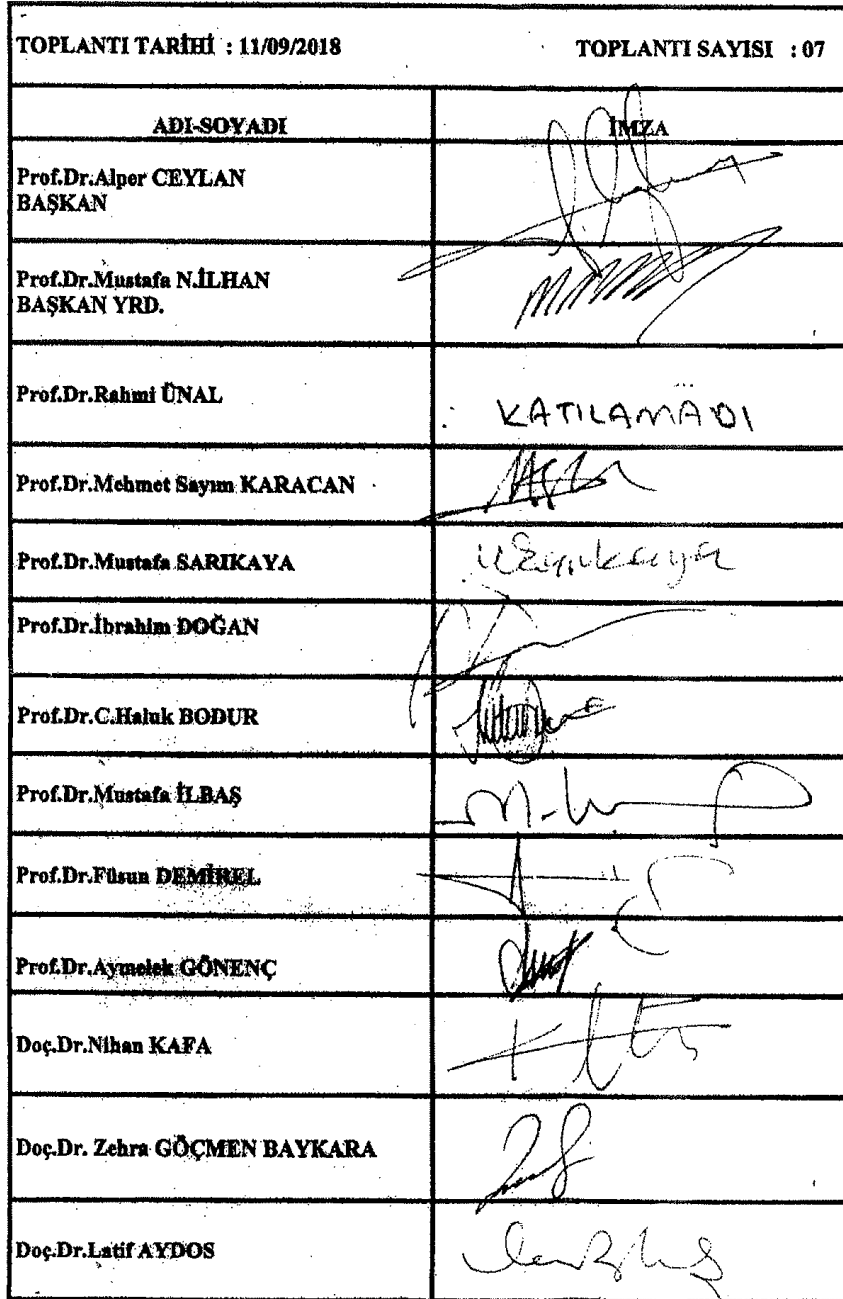 TOPLANTI TARİHİ : 11/09/2018 TOPLANTI SAYISI : 07
ADI-SOYADI İMZA
Prof.Dr.Alper CEYLAN
BAŞKAN
Prof.Dr.Mustafa N.İLHAN
BAŞKAN YRD.
Prof.Dr.Rahmi ÜNAL KATILAMADI
Prof.Dr.Mehmet Sayım KARACAN
Prof.Dr.Mustafa SARIKAYA
Prof.Dr.İbrahim DOĞAN
Prof.Dr.C.Haluk BODUR
Prof.Dr.Mustafa İLBAŞ
Prof.Dr.Füsun DEMİREL
Prof.Dr.Aymelek GÖNENÇ
Doç.Dr.Nihan KAFA
Doç.Dr. Zehra GÖÇMEN BAYKARA
Doç.Dr.Latif AYDOS